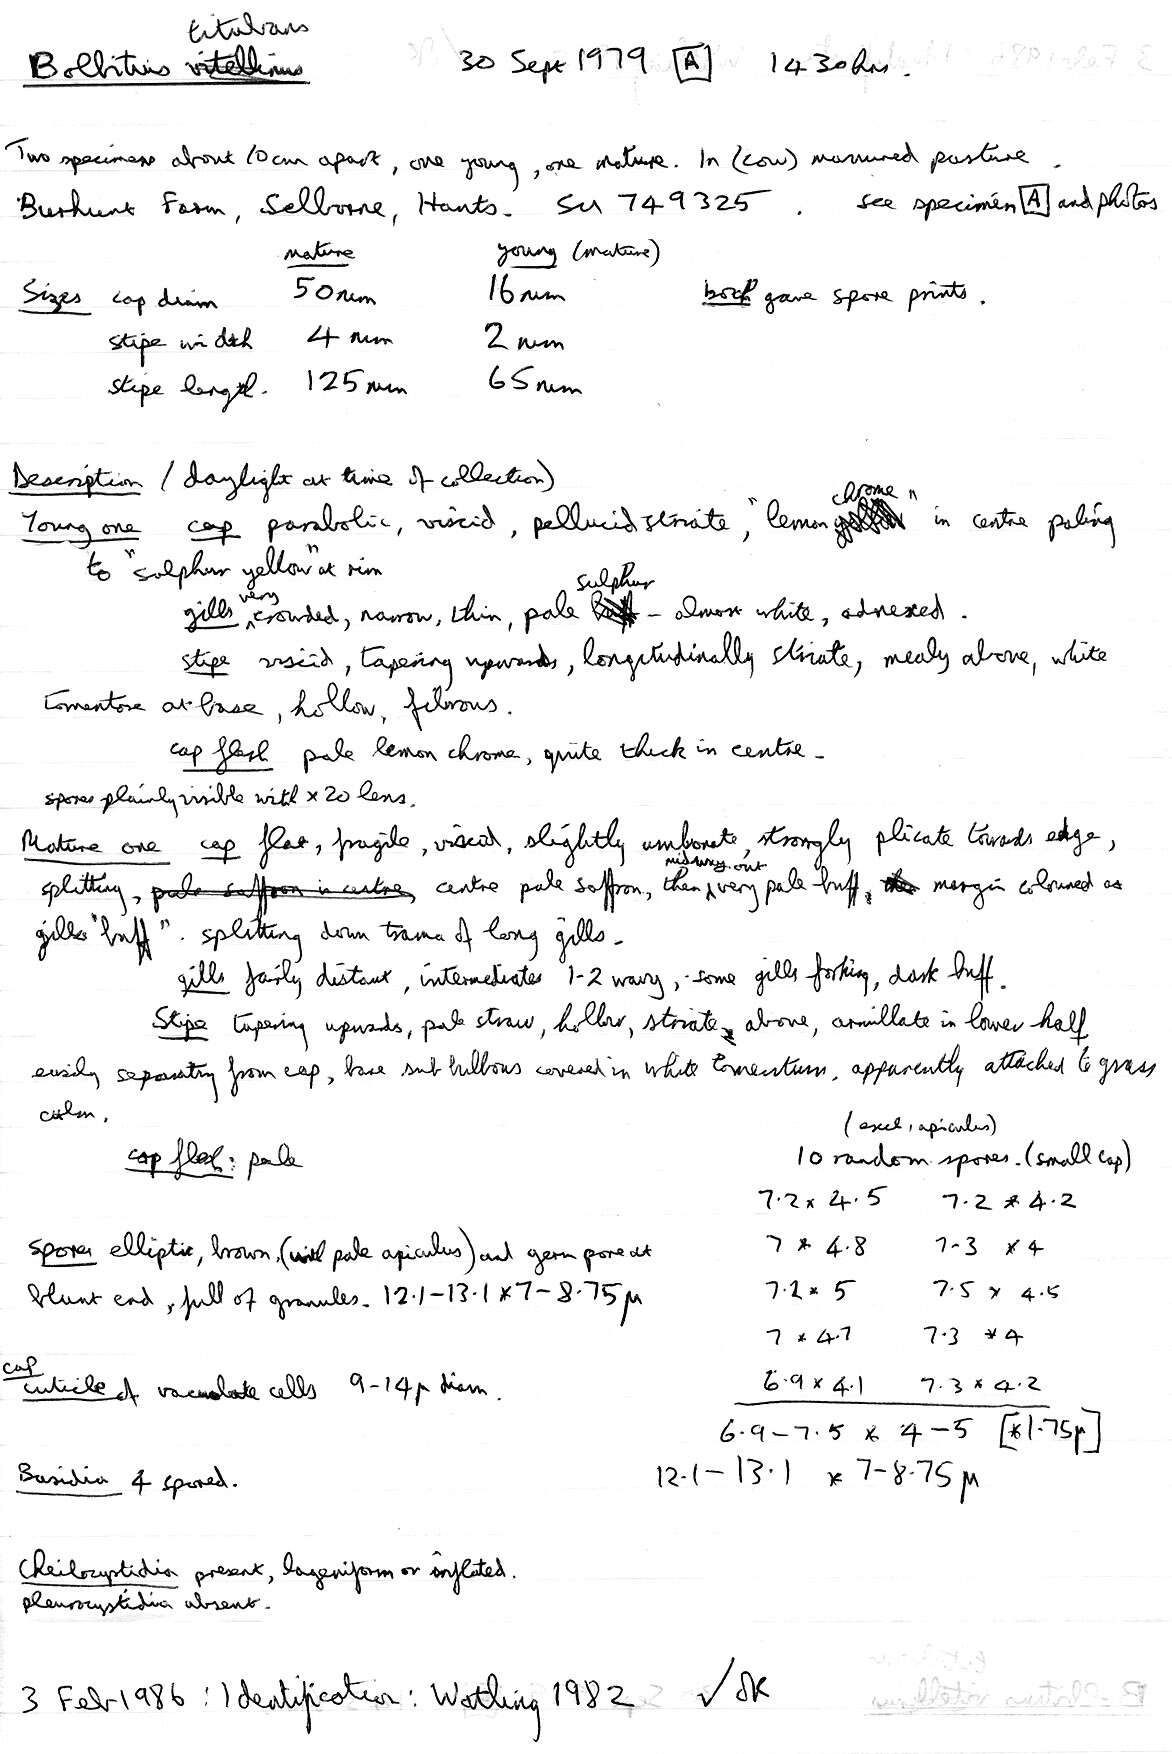 titubans
Bolbitius vitellinus 30 Sept 1979 [A] 1430hrs.
Two specimens about 10cm apart, one young, one mature. In (cow) manured pasture.
Burhunt Farm, Selborne, Hants. SU 749325. see specimen [A] and photos
mature young (mature)
Sizes cap diam 50mm 16mm both gave spore prints.
stipe width 4mm 2mm
stipe length. 125mm 65mm
Description (daylight at time of collection)
chrome"
Young one cap parabolic, viscid, pellucid striate, "lemon in centre paling
to "sulphur yellow" at rim
very sulphur
gills crowded, narrow, thin, pale buff - almost white, adnexed.
stipe viscid, tapering upwards, longitudinally striate, mealy above, white
tomentose at base, hollow, fibrous.
cap flesh pale lemon chrome, quite thick in centre -
spores plainly visible with x20 lens.
Mature one cap flat, fragile, viscid, slightly umbonate, strongly plicate towards edge,
midway out
splitting, pale saffron in centre, centre pale saffron, then very pale buff, margin coloured as
gills "buff". splitting down trama of long gills -
gills fairly distant, intermediates 1-2 wavy, some gills forking, dark buff.
Stipe tapering upwards, pale straw, hollow, striate above, armillate in lower half
easily separating from cap, base sub bulbous covered in white tomentum, apparently attached to grass
culm.
(excl. apiculus)
cap flesh: pale 10 random spores. (small cap)
7.2 x 4.5 7.2 x 4.2
Spores elliptic, brown, (with pale apiculus) and germ pore at 7 x 4.8 7.3 x 4
blunt end, full of granules. 12.1-13.1 x 7-8.75µ 7.2 x 5 7.5 x 4.5
7 x 4.7 7.3 x 4
cap
cuticle of vacuolate cells 9-14µ diam. 6.9 x 4.1 7.3 x 4.2
6.9-7.5 x 4-5 [x1.75µ]
Basidia 4 spored. 12.1-13.1 x 7-8.75µ
Cheilocystidia present, lageniform or inflated.
pleurocystidia absent.
3 Feb 1986: Identification: Watling 1982 ✓ OK